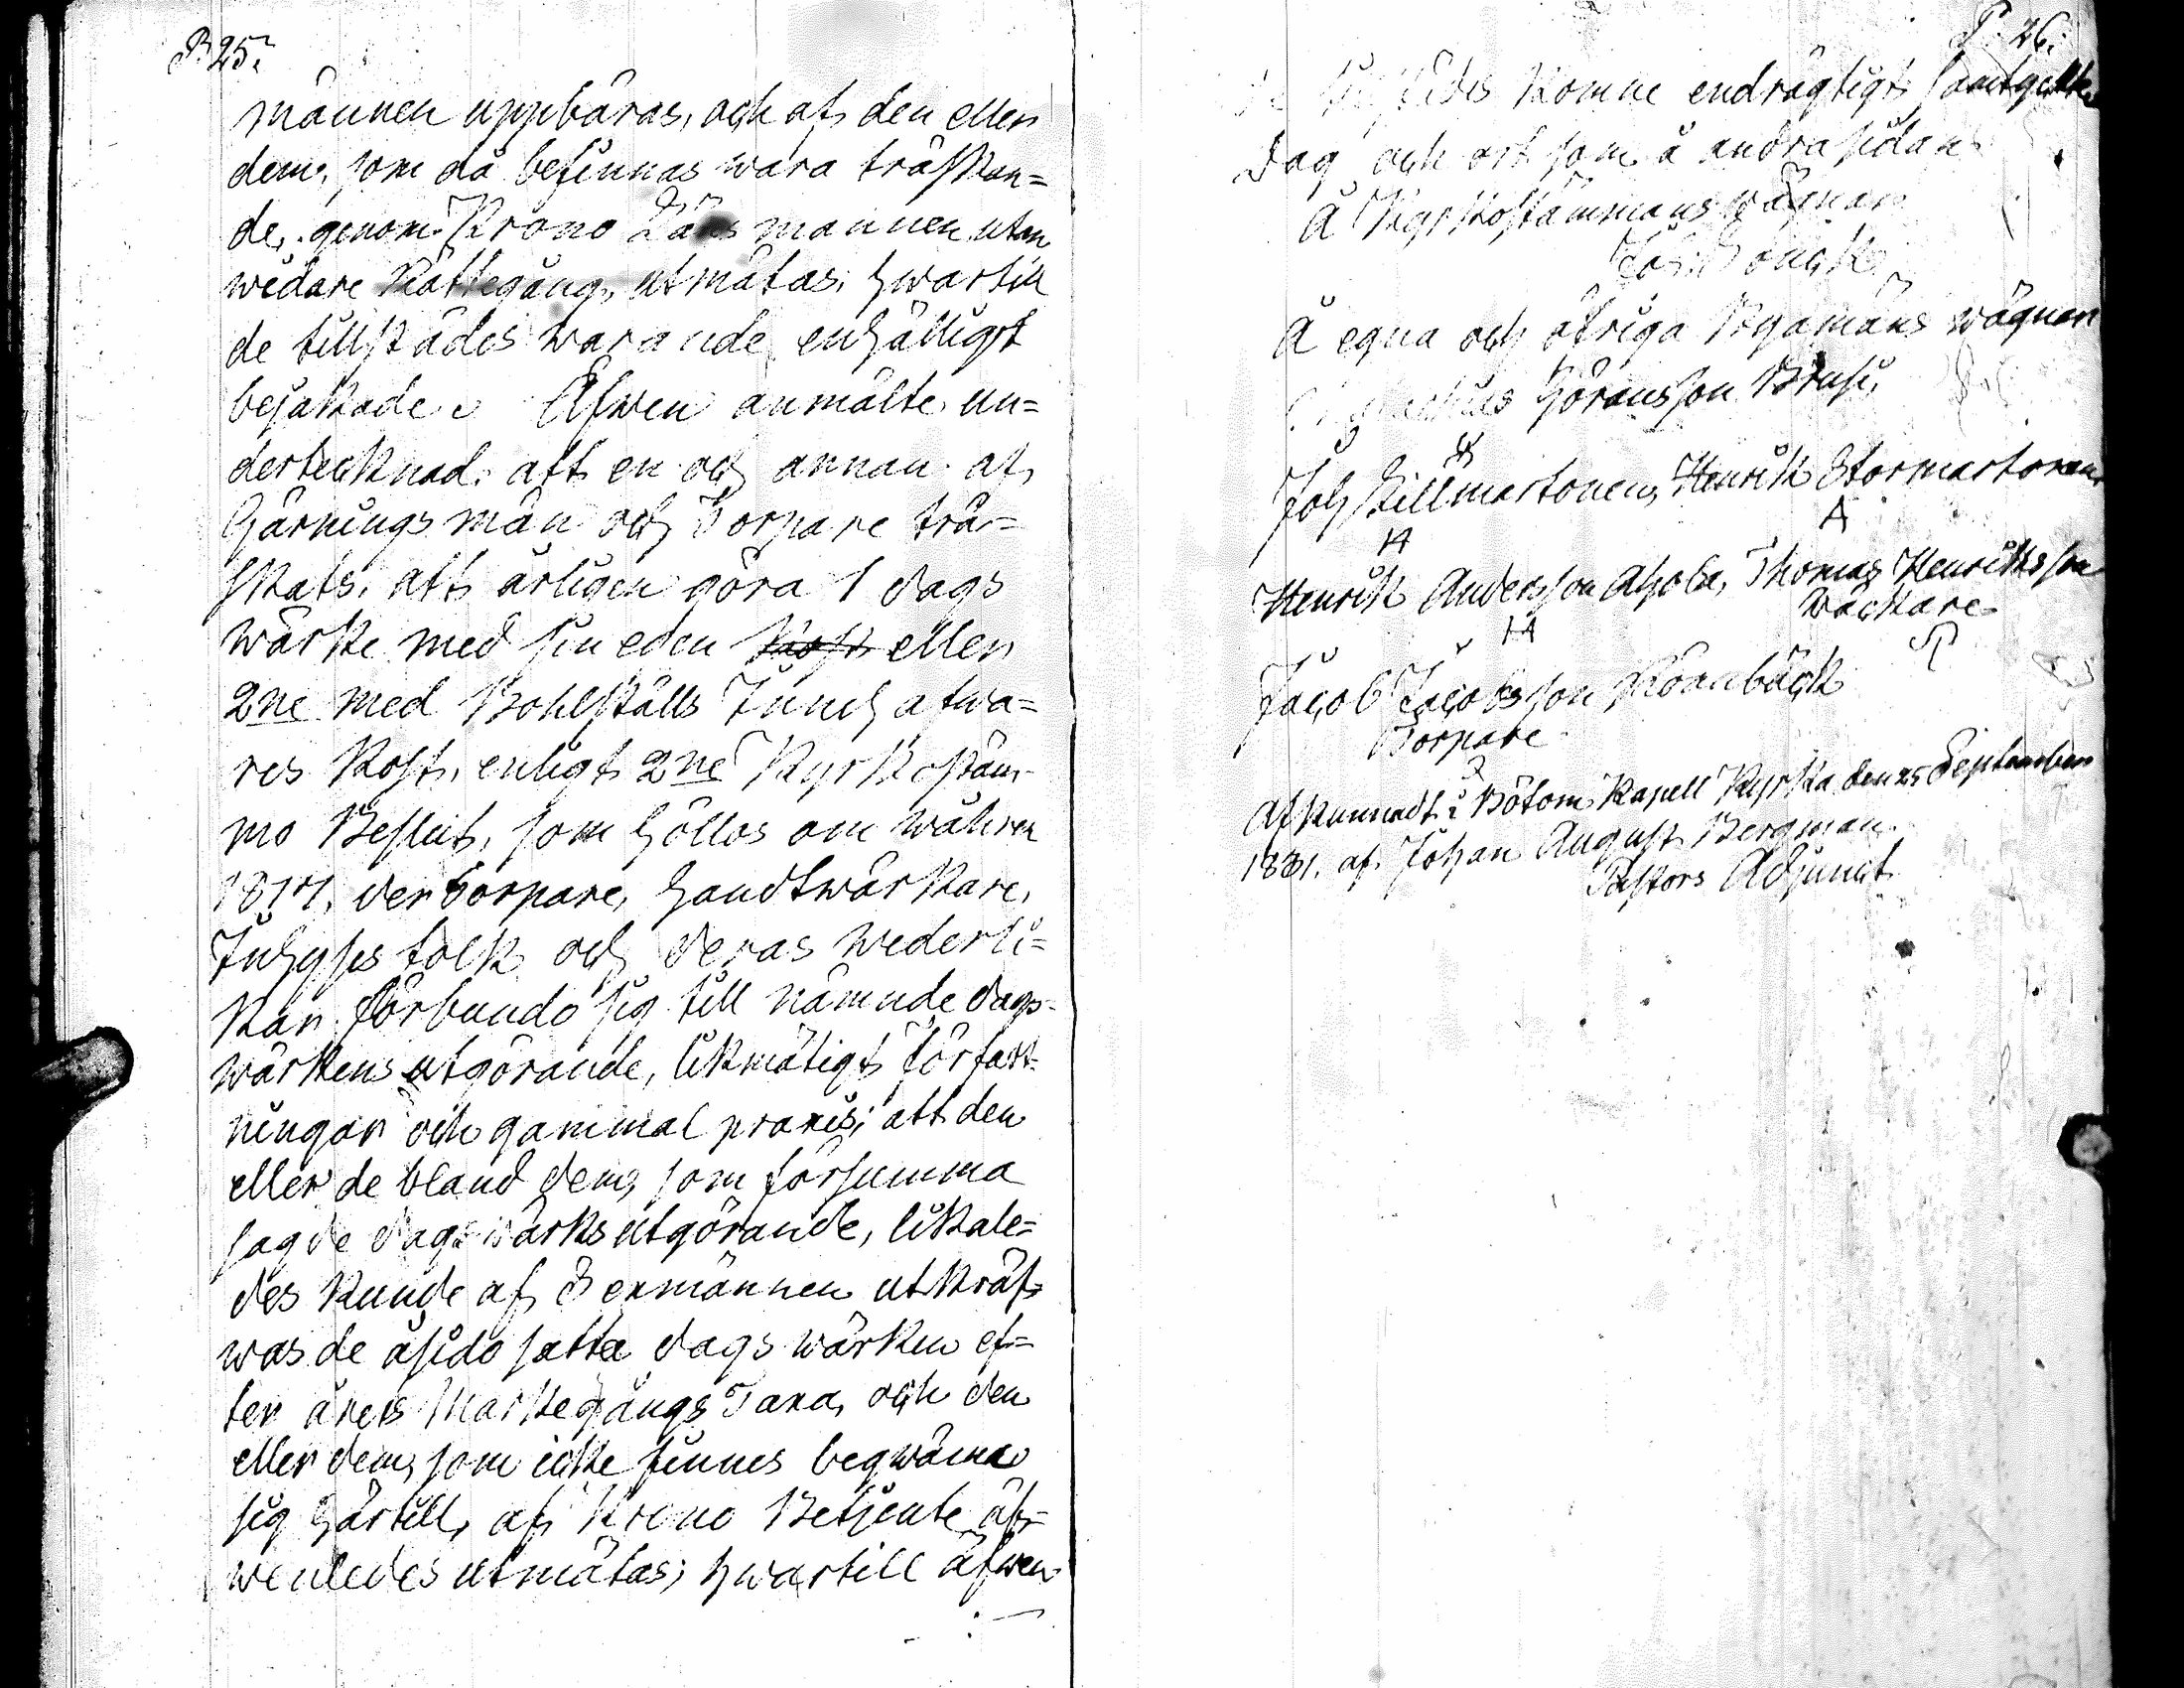 P. 25.
männen uppbäras, och af den eller
dem, som då befinnas wara träskan=
de, genom Krono Länsmannen utan
widare Rättegång, utmätas. hwartill
de tillstädes warande enhälligt
bejakade. Äfwen anmälte un=
dertecknad. att en och annan af
Gärnings män och Torpare trä=
skats, att årligen göra 1 dags
wärke med sin egen kost eller
2ne med Bohlställs Innehafwa=
res Kost, enligt 2ne Kyrkostäm=
mo Beslut, som höllos om wåhren
1817, der torpare, handtwärkare,
Inhyses folk och deras wederli=
kar förbundo sig till nämnde dags=
wärkens utgörande, likmätigt författ=
ningar och gammal praxis; att den
eller de bland dem, som försumma
sagde dagswärks utgörande, likale=
des kunde af Sexmännen utkräf=
was de åsidosatta dagswärken ef=
ter årets Markegångs Taxa, och den
eller dem, som icke finnes beqwäma
sig härtill, af Krono Betjente äf=
wenledes utmätas; hwartill äfwen
P. 26.
komne endrägtigt samtyckte
Dag och ort som å andra sidan
Å Kyrkostämmans wägnar
Å egna och öfriga Byamäns wägnar
Göransson Brusi,
Joh Killmartonen, Henrik Stormartonen
Henrik Andersson Ahola, Thomas Henriksson
Wäckare
Jacob Jacobsson Rönnbäck
Torpare
Afkunnadt i Bötom Kapell Kyrka den 25 September
1831. af Johan August Bergman.
Pastors Adjunct.